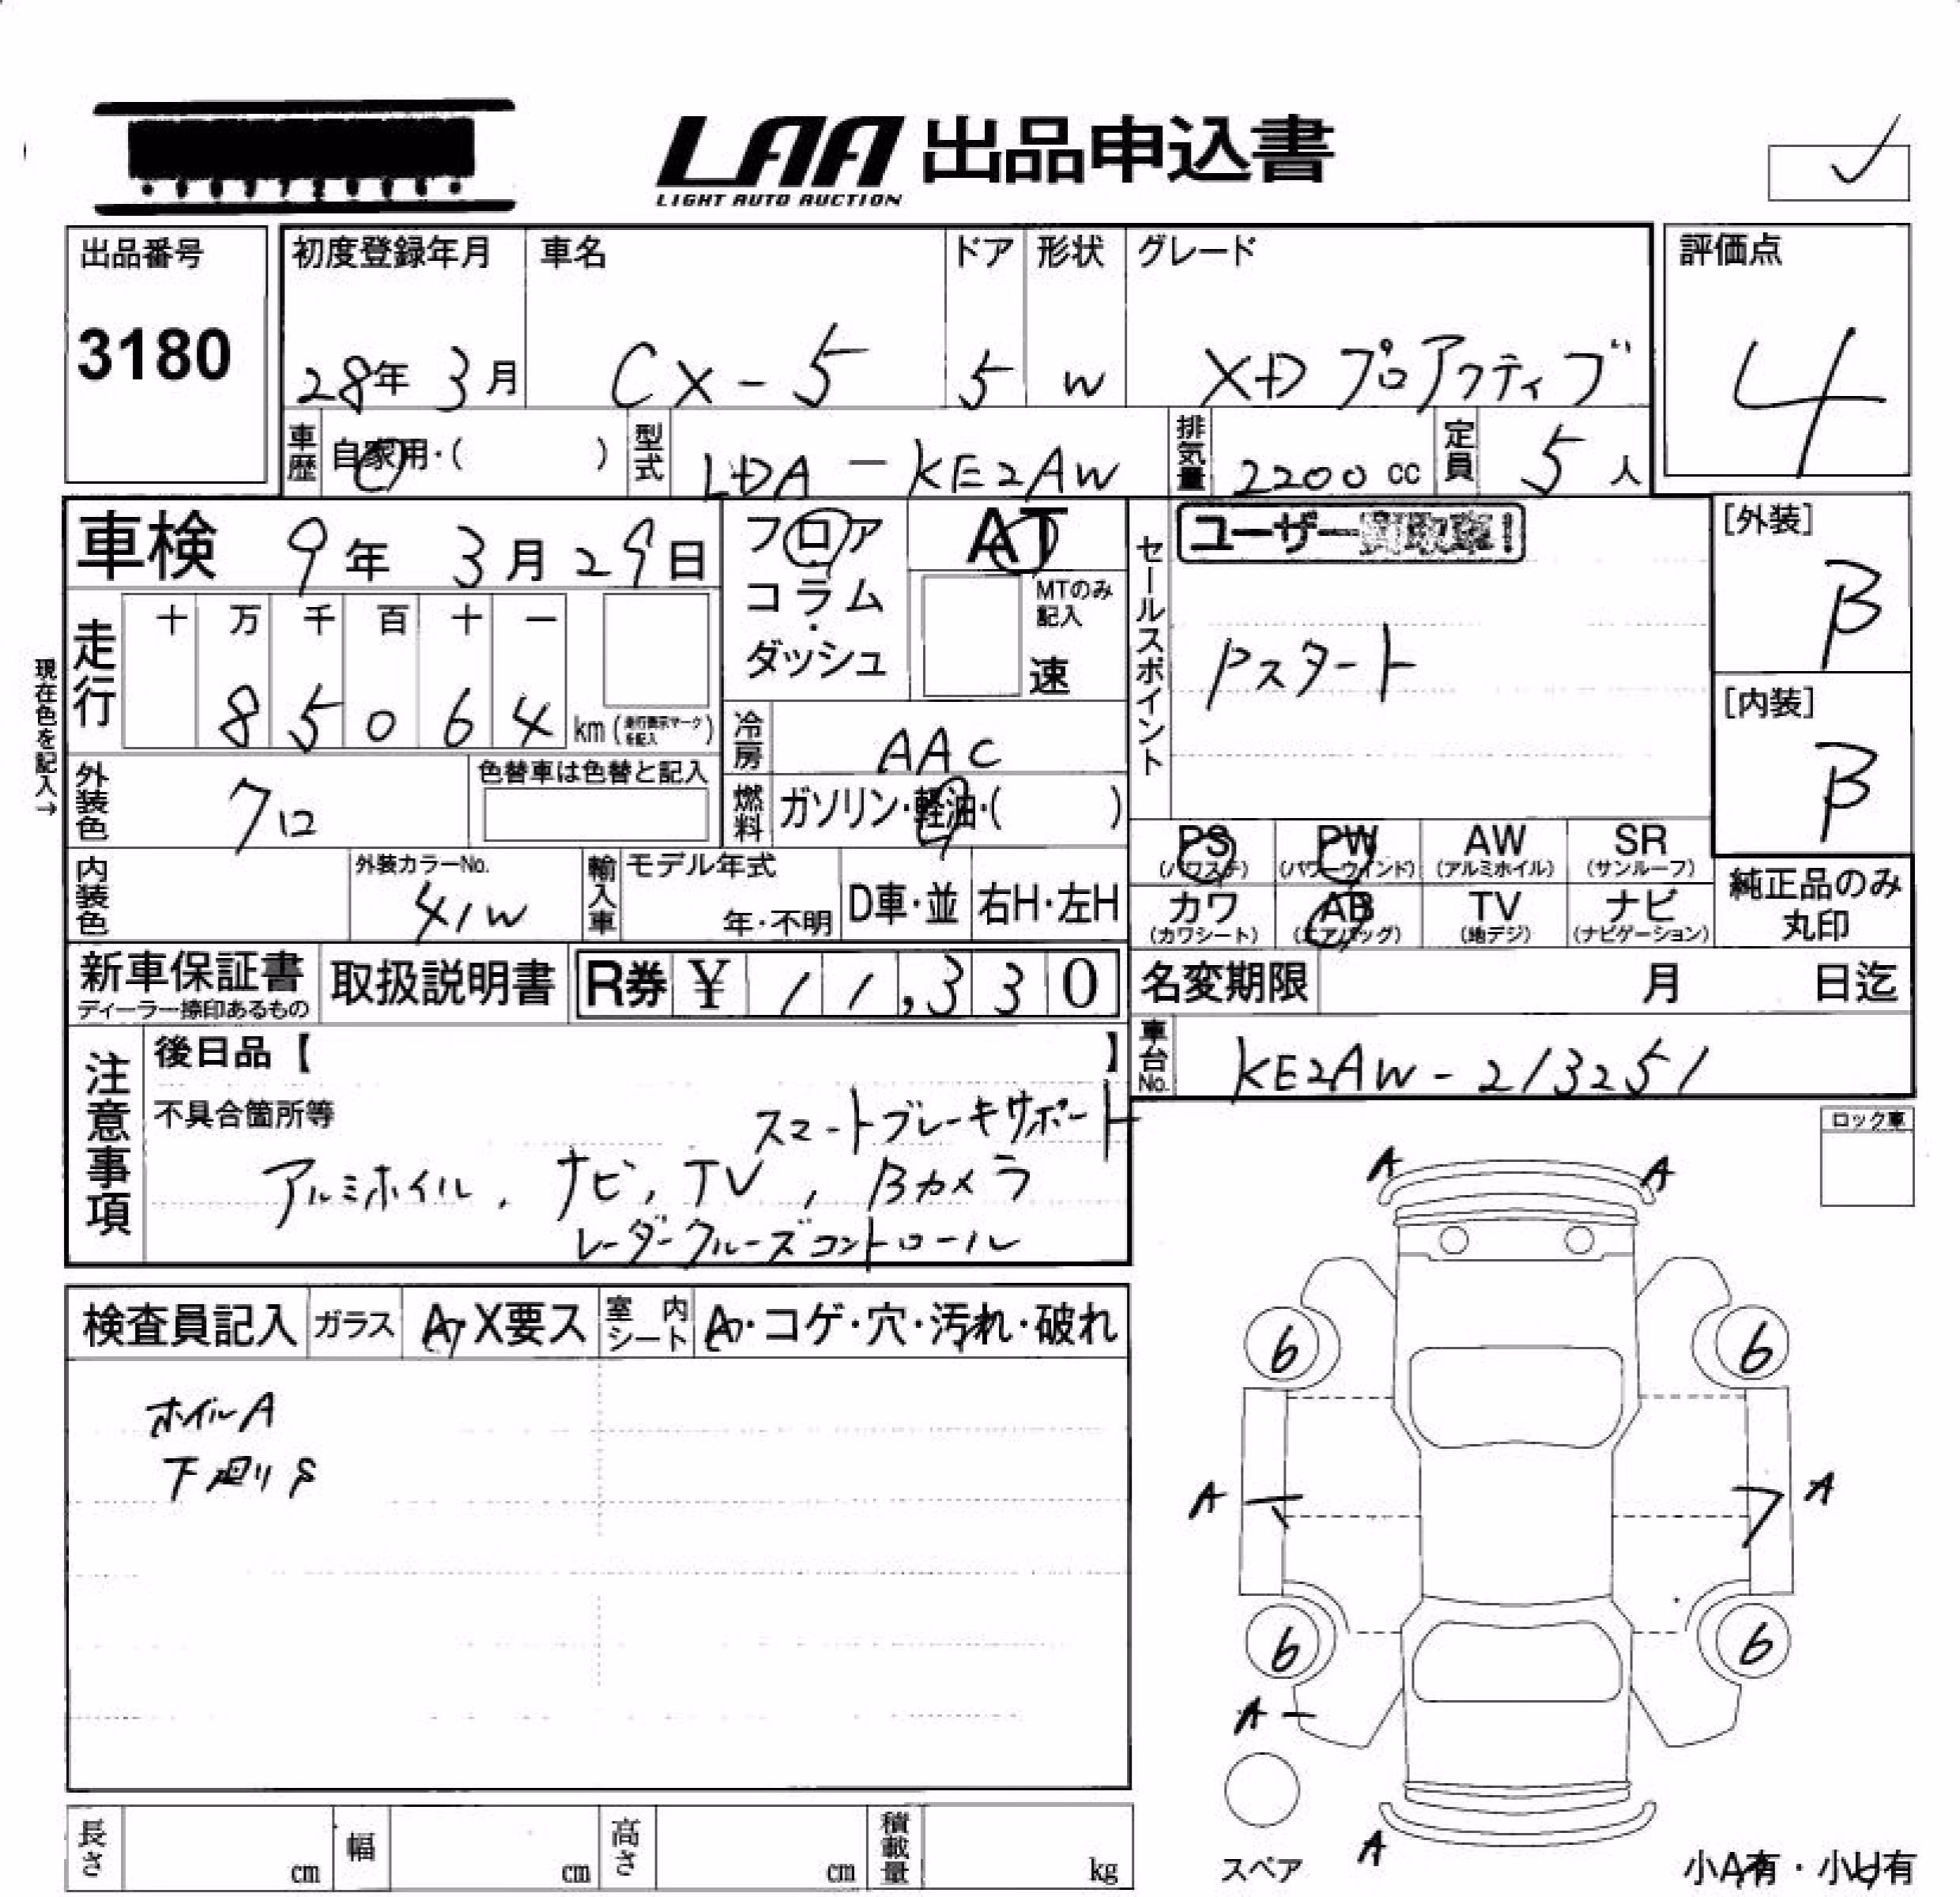 LAA 出品申込書
LIGHT AUTO AUCTION
出品番号
3180
初度登録年月
28年 3月
車名
CX-5
ドア
5
形状
W
グレード
XD プロアクティブ
評価点
4
車歴
自家用・( )
型式
LDA-KE2AW
排気量
2200 cc
定員
5 人
車検 9年 3月 29日
フロア
コラム
・
ダッシュ
AT
MTのみ
記入
速
セールスポイント
ユーザー
Pスタート
[外装]
B
[内装]
B
現在色を記入→
走行
十 万 千 百 十 一
8 5 0 6 4 km (走行表示マークを記入)
冷房
AAC
外装色
クロ
色替車は色替と記入
燃料
ガソリン・軽油・( )
内装色
外装カラーNo.
41W
輸入車
モデル年式
年・不明
D車・並
右H・左H
PS
(パワステ)
PW
(パワーウインド)
AW
(アルミホイル)
SR
(サンルーフ)
カワ
(カワシート)
AB
(エアバッグ)
TV
(地デジ)
ナビ
(ナビゲーション)
純正品のみ
丸印
新車保証書
ディーラー捺印あるもの
取扱説明書
R券 ¥ 11,330
名変期限 月 日迄
車台No.
KE2AW-213251
注意事項
後日品【 】
不具合箇所等
スマートブレーキサポート
アルミホイル, ナビ, TV, Bカメラ
レーダークルーズコントロール
ロック車
検査員記入
ガラス
A・X要ス
室内シート
A・コゲ・穴・汚れ・破れ
ホイルA
下廻りS
A A
6 6
A A
6 6
A
A
スペア
小A有・小U有
長さ cm
幅 cm
高さ cm
積載量 kg